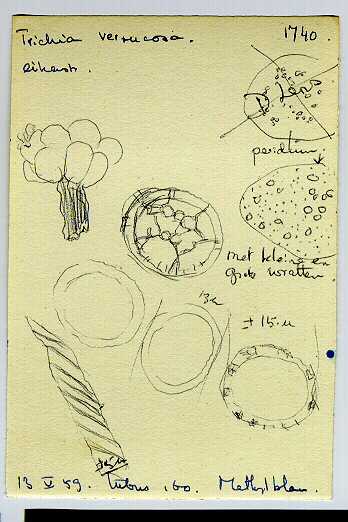 Trichia verrucosa. 1740.
eikenst.
peridium
met kleine en
grote wratten.
13µ
± 15µ
± 5µ
13 V 59. Tubus 160. Methylblau.